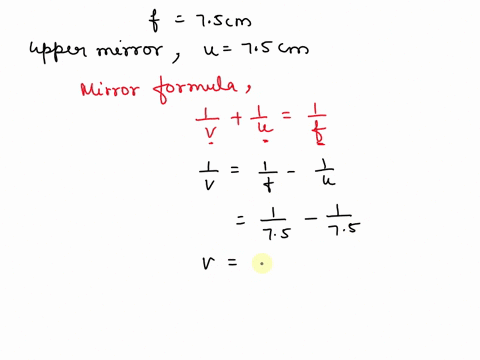 f = 7.5cm
upper mirror, u = 7.5cm
Mirror formula,
1/v + 1/u = 1/f
1/v = 1/f - 1/u
= 1/7.5 - 1/7.5
v =